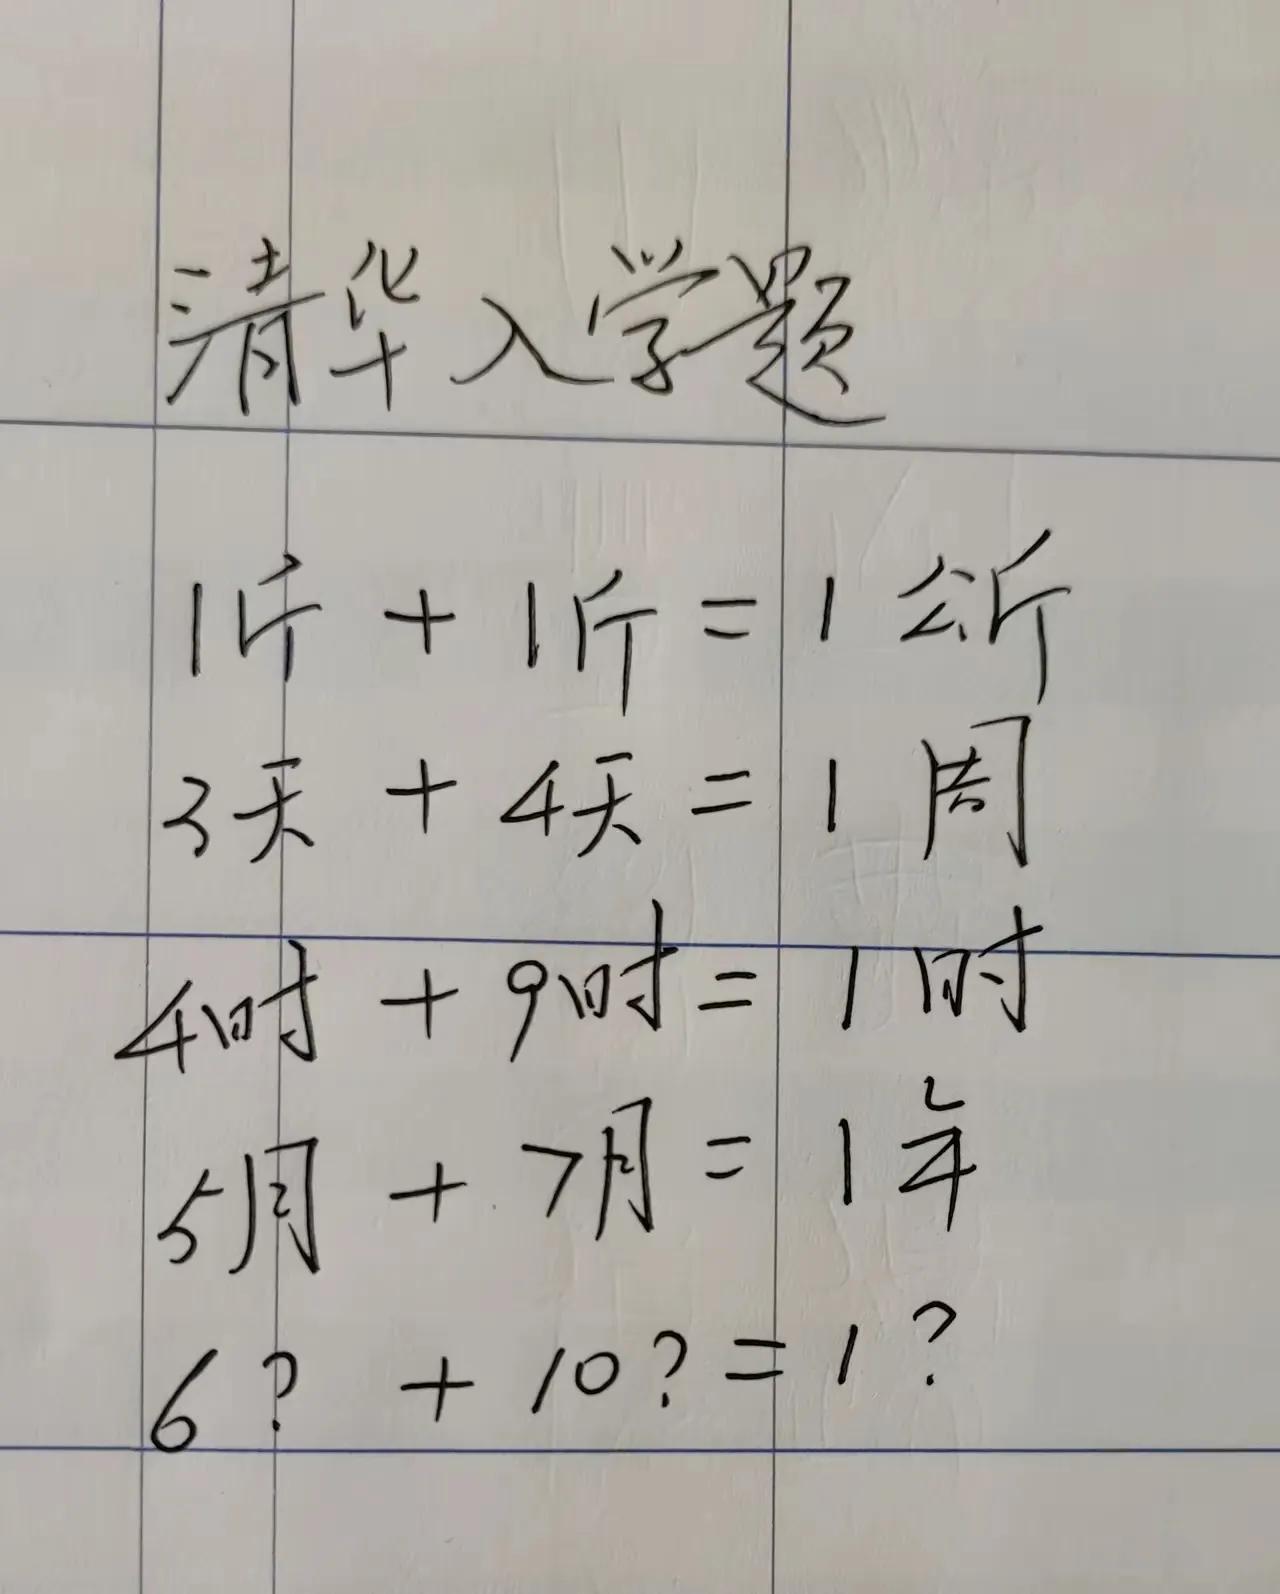 清华入学题
1斤 + 1斤 = 1公斤
3天 + 4天 = 1周
4时 + 9时 = 1时
5月 + 7月 = 1年
6? + 10? = 1?